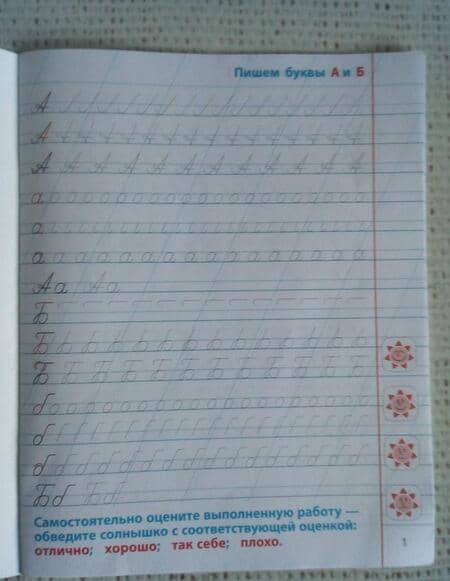 Пишем буквы А и Б
А
А
А А А А А А А А А А А А
а
а
а а а а а а а а а а а а а а
Аа Аа
Б
Б Б Б Б Б Б Б Б Б Б Б Б
Б Б Б Б Б Б Б Б Б Б Б
б
б
б б б б б б б б б б б б б б
Бб Бб
Самостоятельно оцените выполненную работу —
обведите солнышко с соответствующей оценкой:
отлично; хорошо; так себе; плохо.
1